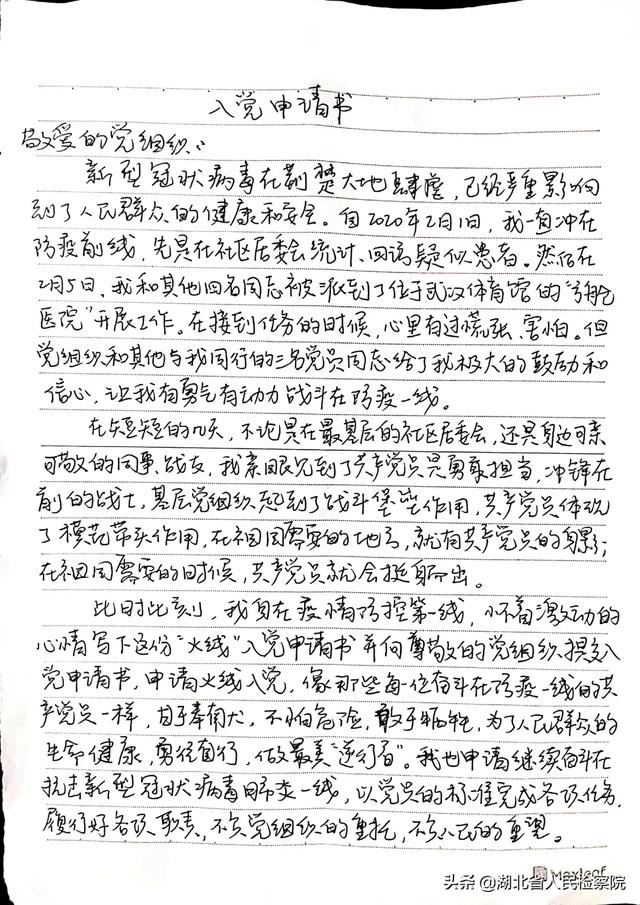 入党申请书
敬爱的党组织：
新型冠状病毒在荆楚大地肆虐，已经严重影响
到了人民群众的健康和安全。自2020年2月1日，我一直冲在
防疫前线，先是在社区居委会统计、回访疑似患者。然后在
2月5日，我和其他四名同志被派到了位于武汉体育馆的“方舱
医院”开展工作。在接到任务的时候，心里有过慌张、害怕。但
党组织和其他与我同行的三名党员同志给了我极大的鼓励和
信心，让我有勇气有动力战斗在防疫一线。
在短短的几天，不论是在最基层的社区居委会，还是身边可亲
可敬的同事、战友，我亲眼见到了共产党员是勇敢担当，冲锋在
前的战士，基层党组织起到了战斗堡垒作用，共产党员体现
了模范带头作用，在祖国需要的地方，就有共产党员的身影；
在祖国需要的时候，共产党员就会挺身而出。
此时此刻，我身在疫情防控第一线，怀着激动的
心情写下这份“火线”入党申请书并向尊敬的党组织提交入
党申请书，申请火线入党，像那些每一位奋斗在防疫一线的共
产党员一样，甘于奉献，不怕危险，敢于牺牲，为了人民群众的
生命健康，勇往直行，做最美“逆行者”。我也申请继续奋斗在
抗击新型冠状病毒肺炎一线，以党员的标准完成各项任务，
履行好各项职责，不负党组织的重托，不负人民的重望。
Maxleaf
头条@湖北省人民检察院